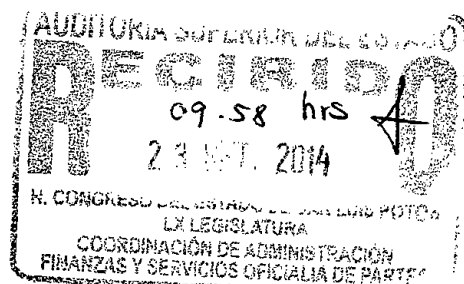 AUDITORIA SUPERIOR DEL ESTADO
RECIBIDO
09.58 hrs
2014
H. CONGRESO DEL ESTADO DE SAN LUIS POTOSI
LX LEGISLATURA
COORDINACIÓN DE ADMINISTRACIÓN
FINANZAS Y SERVICIOS OFICIALIA DE PARTES